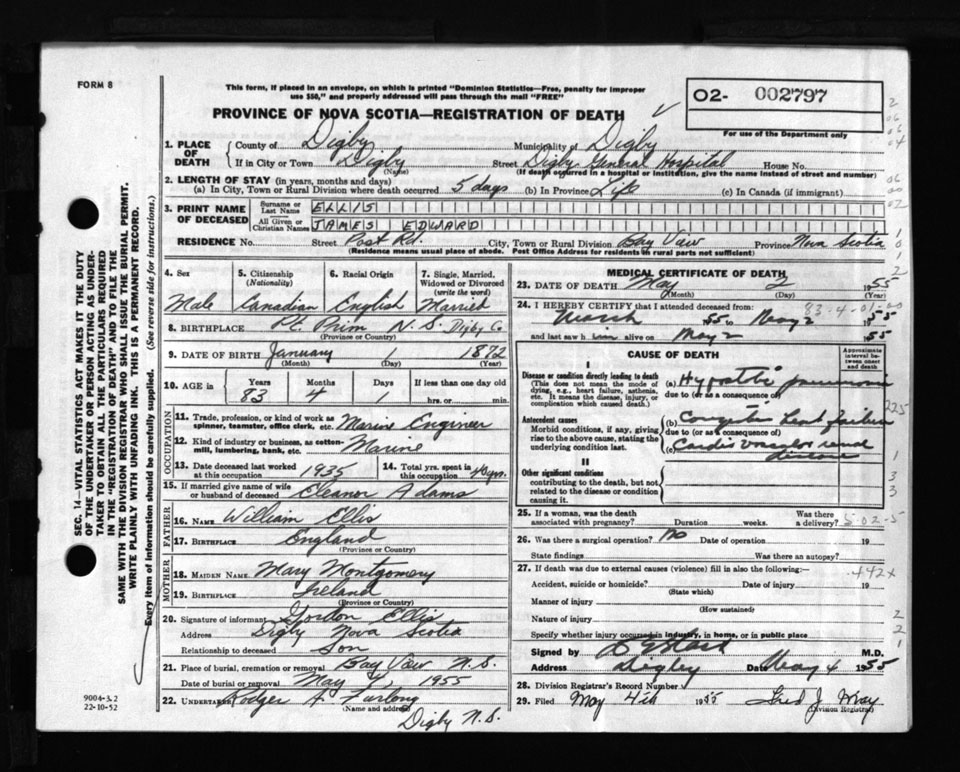 FORM 8
This form, if placed in an envelope, on which is printed "Dominion Statistics—Free, penalty for improper
use $50," and properly addressed will pass through the mail "FREE"
PROVINCE OF NOVA SCOTIA—REGISTRATION OF DEATH
02- 002797
For use of the Department only
1. PLACE OF DEATH
County of Digby Municipality of Digby
If in City or Town Digby Street Digby General Hospital House No.
(Name) (If death occurred in a hospital or institution, give the name instead of street and number)
2. LENGTH OF STAY (in years, months and days)
(a) In City, Town or Rural Division where death occurred 5 days (b) In Province Life (c) In Canada (if immigrant)
3. PRINT NAME OF DECEASED
Surname or Last Name ELLIS
All Given or Christian Names JAMES EDWARD
RESIDENCE No. Street Post Rd. City, Town or Rural Division Bay View Province Nova Scotia
(Residence means usual place of abode. Post Office Address for residents in rural parts not sufficient)
4. Sex Male
5. Citizenship (Nationality) Canadian
6. Racial Origin English
7. Single, Married, Widowed or Divorced (write the word) Married
8. BIRTHPLACE Pt. Prim N.S. Digby Co
(Province or Country)
9. DATE OF BIRTH January 1 1872
(Month) (Day) (Year)
10. AGE in Years Months Days If less than one day old
83 4 1 hrs. or min.
OCCUPATION
11. Trade, profession, or kind of work as spinner, teamster, office clerk, etc. Marine Engineer
12. Kind of industry or business, as cotton-mill, lumbering, bank, etc. Marine
13. Date deceased last worked at this occupation 1935
14. Total yrs. spent in this occupation 40 yrs.
15. If married give name of wife or husband of deceased Eleanor Adams
FATHER
16. NAME William Ellis
17. BIRTHPLACE England
(Province or Country)
MOTHER
18. MAIDEN NAME Mary Montgomery
19. BIRTHPLACE Ireland
(Province or Country)
20. Signature of informant Gordon Ellis
Address Digby Nova Scotia
Relationship to deceased Son
21. Place of burial, cremation or removal Bay View N.S.
Date of burial or removal May 1955
22. UNDERTAKER Rodger Furlong
(Name and address)
Digby N.S.
MEDICAL CERTIFICATE OF DEATH
23. DATE OF DEATH May 2 1955
(Month) (Day) (Year)
24. I HEREBY CERTIFY that I attended deceased from:
83-4-01-00
March 1955 to May 2 1955
and last saw him alive on May 2 1955
CAUSE OF DEATH
Approximate interval between onset and death
I
Disease or condition directly leading to death
(This does not mean the mode of dying, e.g., heart failure, asthenia, etc. It means the disease, injury, or complication which caused death.)
(a) pneumonia
due to (or as a consequence of)
Antecedent causes
Morbid conditions, if any, giving rise to the above cause, stating the underlying condition last.
(b) Congestive heart failure
due to (or as a consequence of)
(c) Cardio vascular renal disease
II
Other significant conditions
contributing to the death, but not related to the disease or condition causing it.
25. If a woman, was the death associated with pregnancy? Duration weeks. Was there a delivery?
5-02-5
26. Was there a surgical operation? no Date of operation 19
State findings Was there an autopsy?
27. If death was due to external causes (violence) fill in also the following:—
442X
Accident, suicide or homicide? Date of injury 19
(State which)
Manner of injury
(How sustained)
Nature of injury
Specify whether injury occurred in industry, in home, or in public place
Signed by M.D.
Address Digby Date May 4 1955
28. Division Registrar's Record Number
29. Filed May 4th 1955 Fred J. May
(Division Registrar)
SEC. 14—VITAL STATISTICS ACT MAKES IT THE DUTY
OF THE UNDERTAKER OR PERSON ACTING AS UNDER-
TAKER TO OBTAIN ALL THE PARTICULARS REQUIRED
IN THE "REGISTRATION OF DEATH" AND TO FILE THE
SAME WITH THE DIVISION REGISTRAR WHO SHALL ISSUE THE BURIAL PERMIT.
WRITE PLAINLY WITH UNFADING INK. THIS IS A PERMANENT RECORD.
Every item of information should be carefully supplied. (See reverse side for instructions.)
9004-3.2
22-10-52